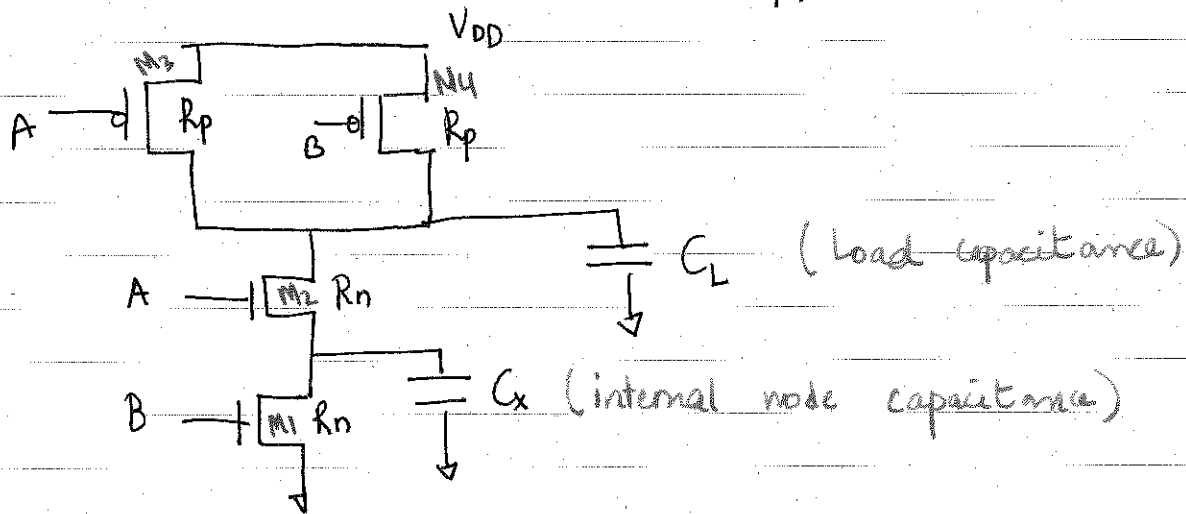 VDD
M3
M4
A
Rp
B
Rp
CL (Load capacitance)
A
M2 Rn
B
M1 Rn
Cx (internal node capacitance)